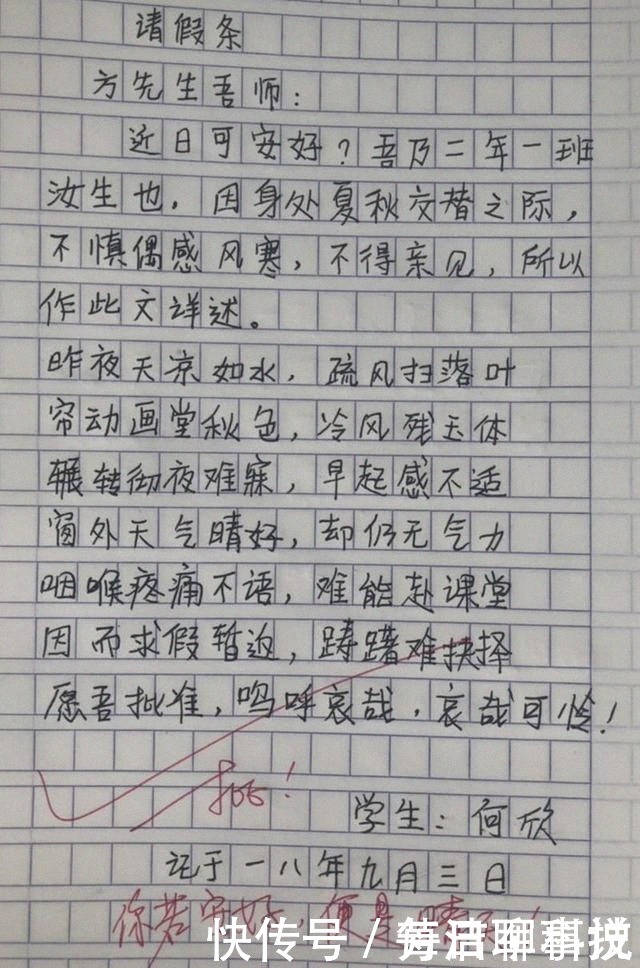 请假条
方先生吾师：
近日可安好？吾乃二年一班
汝生也，因身处夏秋交替之际，
不慎偶感风寒，不得亲见，所以
作此文详述。
昨夜天凉如水，疏风扫落叶
帘动画堂秋色，冷风残玉体
辗转彻夜难寐，早起感不适
窗外天气晴好，却仍无气力
咽喉疼痛不语，难能赴课堂
因而求假暂返，踌躇难抉择
愿吾批准，呜呼哀哉，哀哉可怜！
批！
学生：何欣
记于一八年九月三日
你若安好，便是晴天！
快传号／